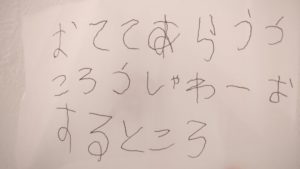 おててあらうう
ころうしゃわーお
するところ